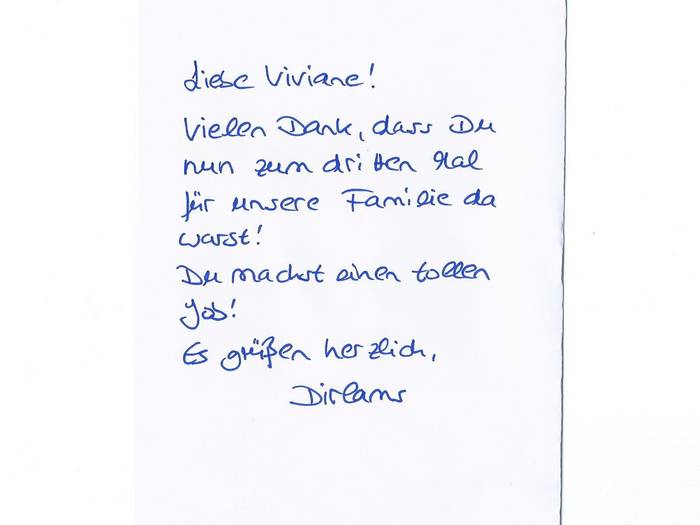 Liebe Viviane!
Vielen Dank, dass Du
nun zum dritten Mal
für unsere Familie da
warst!
Du machst einen tollen
Job!
Es grüßen herzlich,
Dirlams